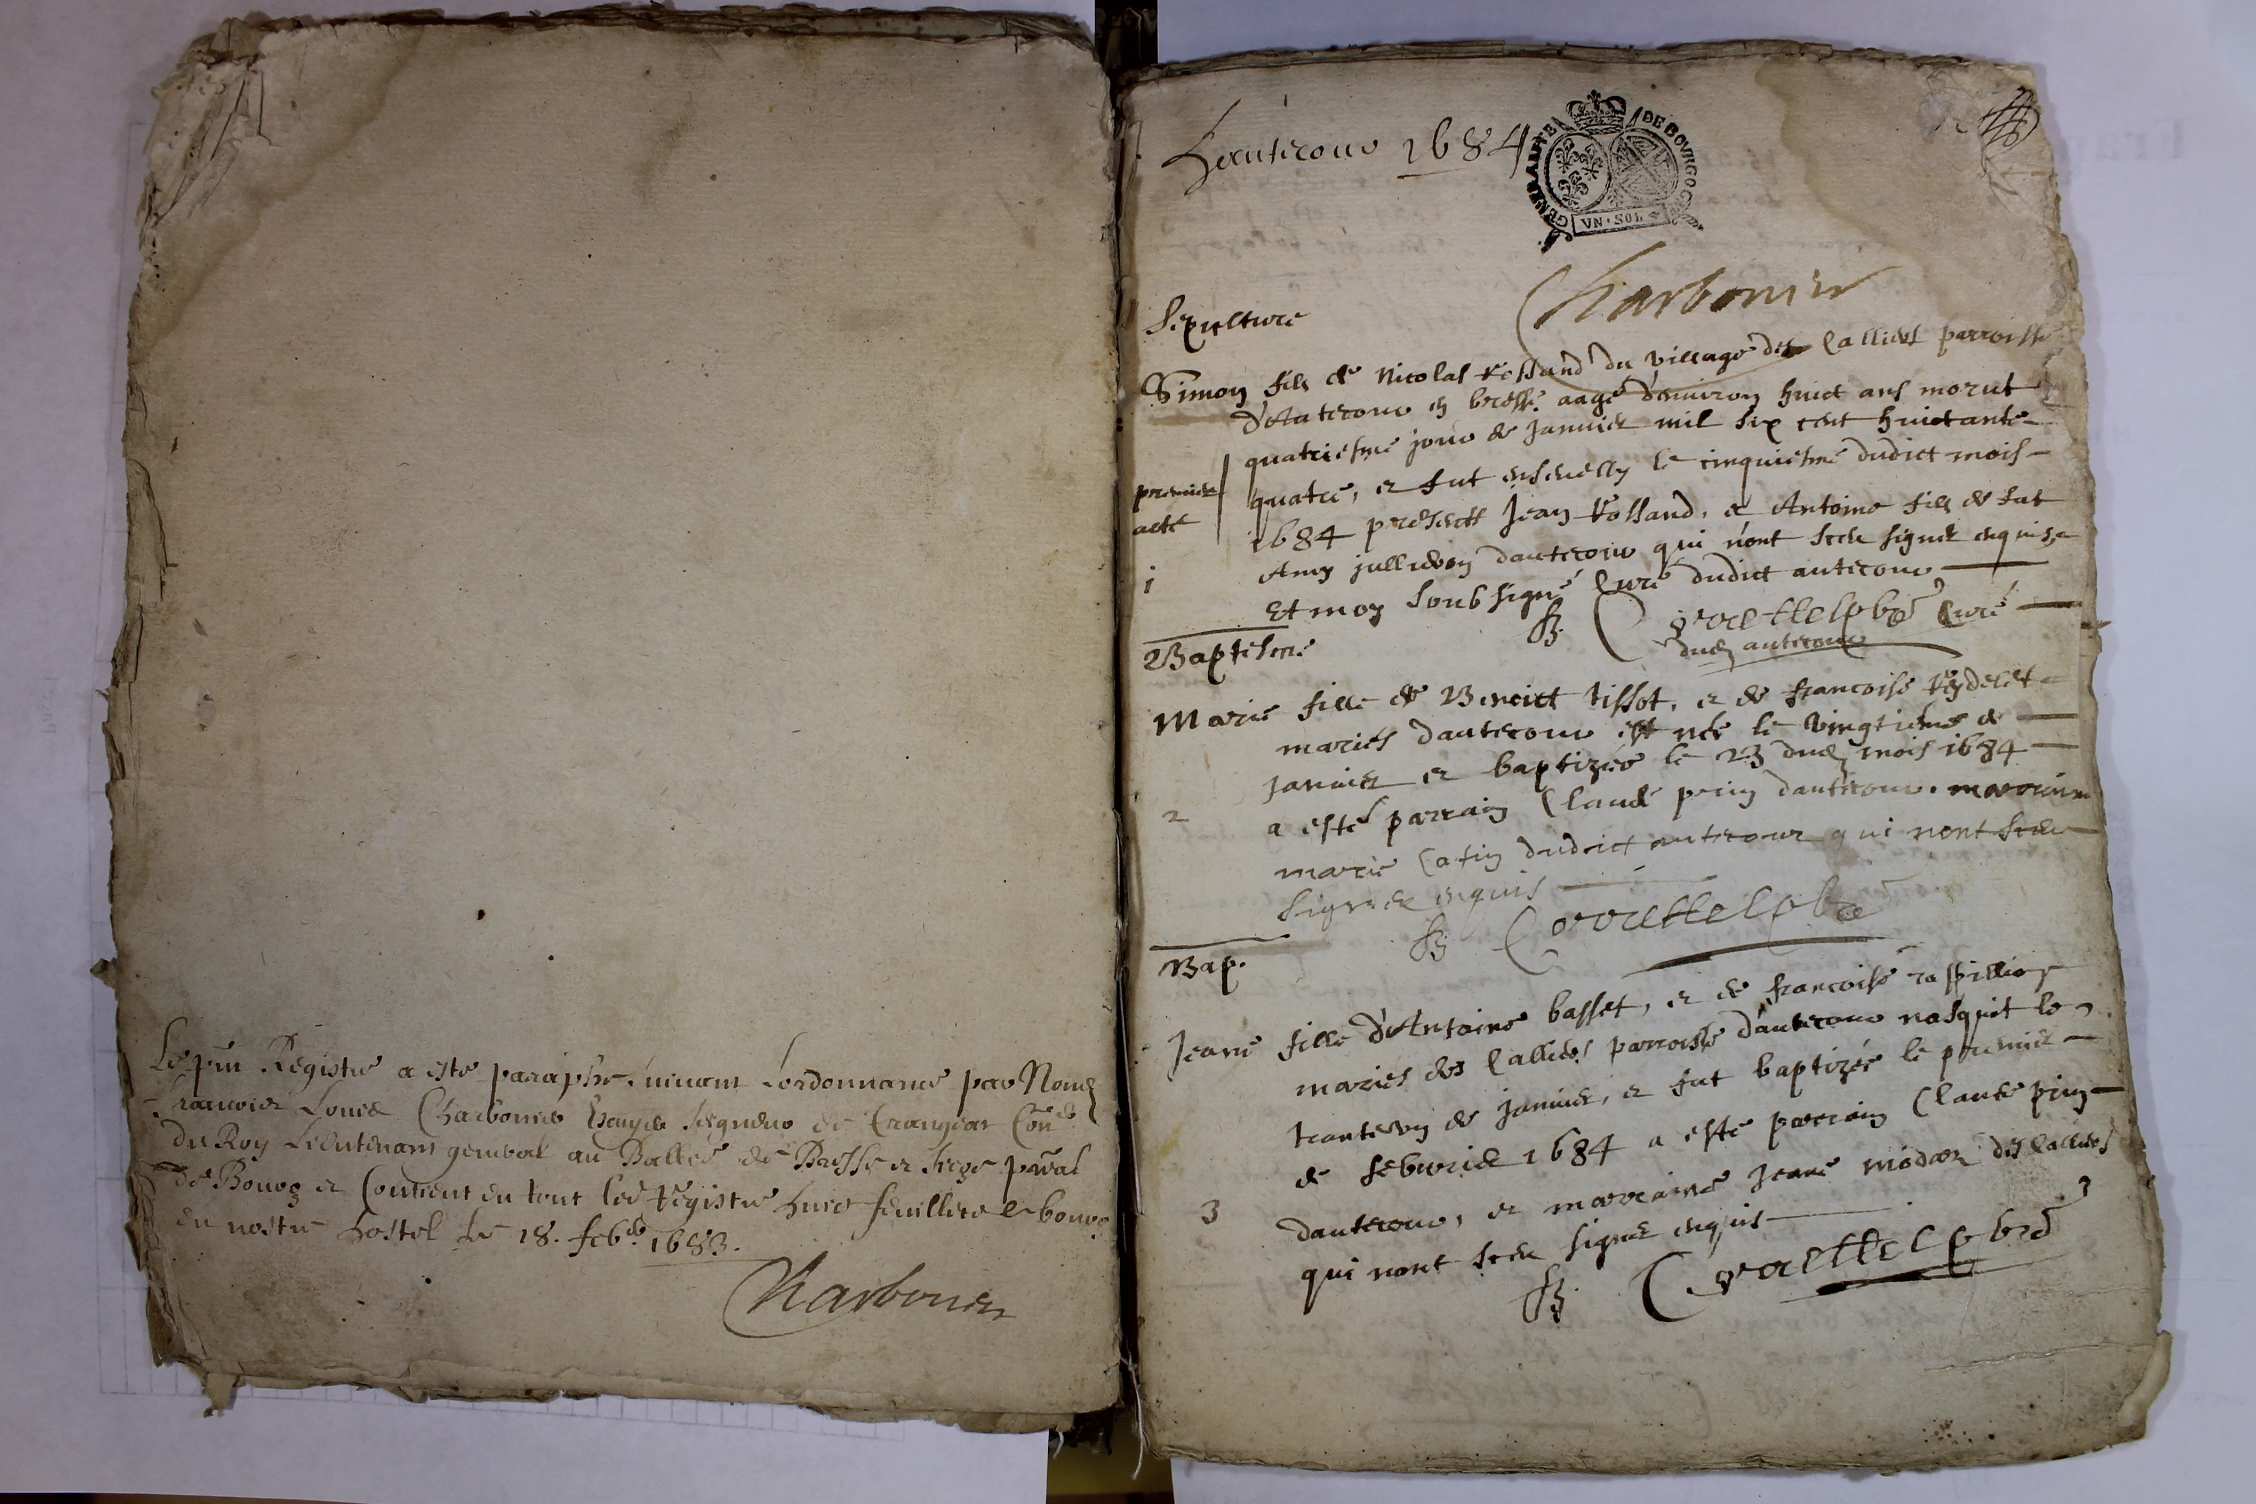 Le pnt Registre a este paraphé suivant l'ordonnance par Nous
Louis Charbonnier Escuyer seigneur de Crangeat Coner
du Roy Lieutenant general au Balliage de Bresse et siege pnal
de Bourg et Contient en tout led Registre huict feuillets a bourg
en nostre hostel le 18. feber 1683.
Charbonier
hautecour 1684
GENERALITE DE BOVRGOG
VN·SOL
Charbonier
Sepulture
Simon fils de Nicolas Rossand du village des Callies parroisse
d'Autecour en bresse aagé d'environ huict ans morut
quatriesme jour de Janvier mil six cent huictante
premier
quatre, et fut ensevelly le cinquiesme dudict mois
acte
1684 presents Jean Rossand, et Antoine fils de fut
i
Amy d'autecour qui n'ont sceu signer enquis
Et moy soubsigné Curé dudict autecour
Curé
dud autecour
Baptesme
Marie fille de Benoict tissot, et de francoise
mariés d'autecour est née le vingtiesme de
Janvier et baptizée le 23 dud mois 1684
2
a esté parrain Claude prin d'autecour. marraine
marie Catin dudict autecour qui nont sceu
signer enquis
Bap.
Jeane fille d'Antoine basset, et de francoise
mariés des Callies parroisse d'autecour nasquit le
trantevn de janvier, et fut baptizée le premier
de febvrier 1684 a esté parrain Claude prin
3
dautecour, et marraine Jeane des Callies
qui nont sceu signer enquis